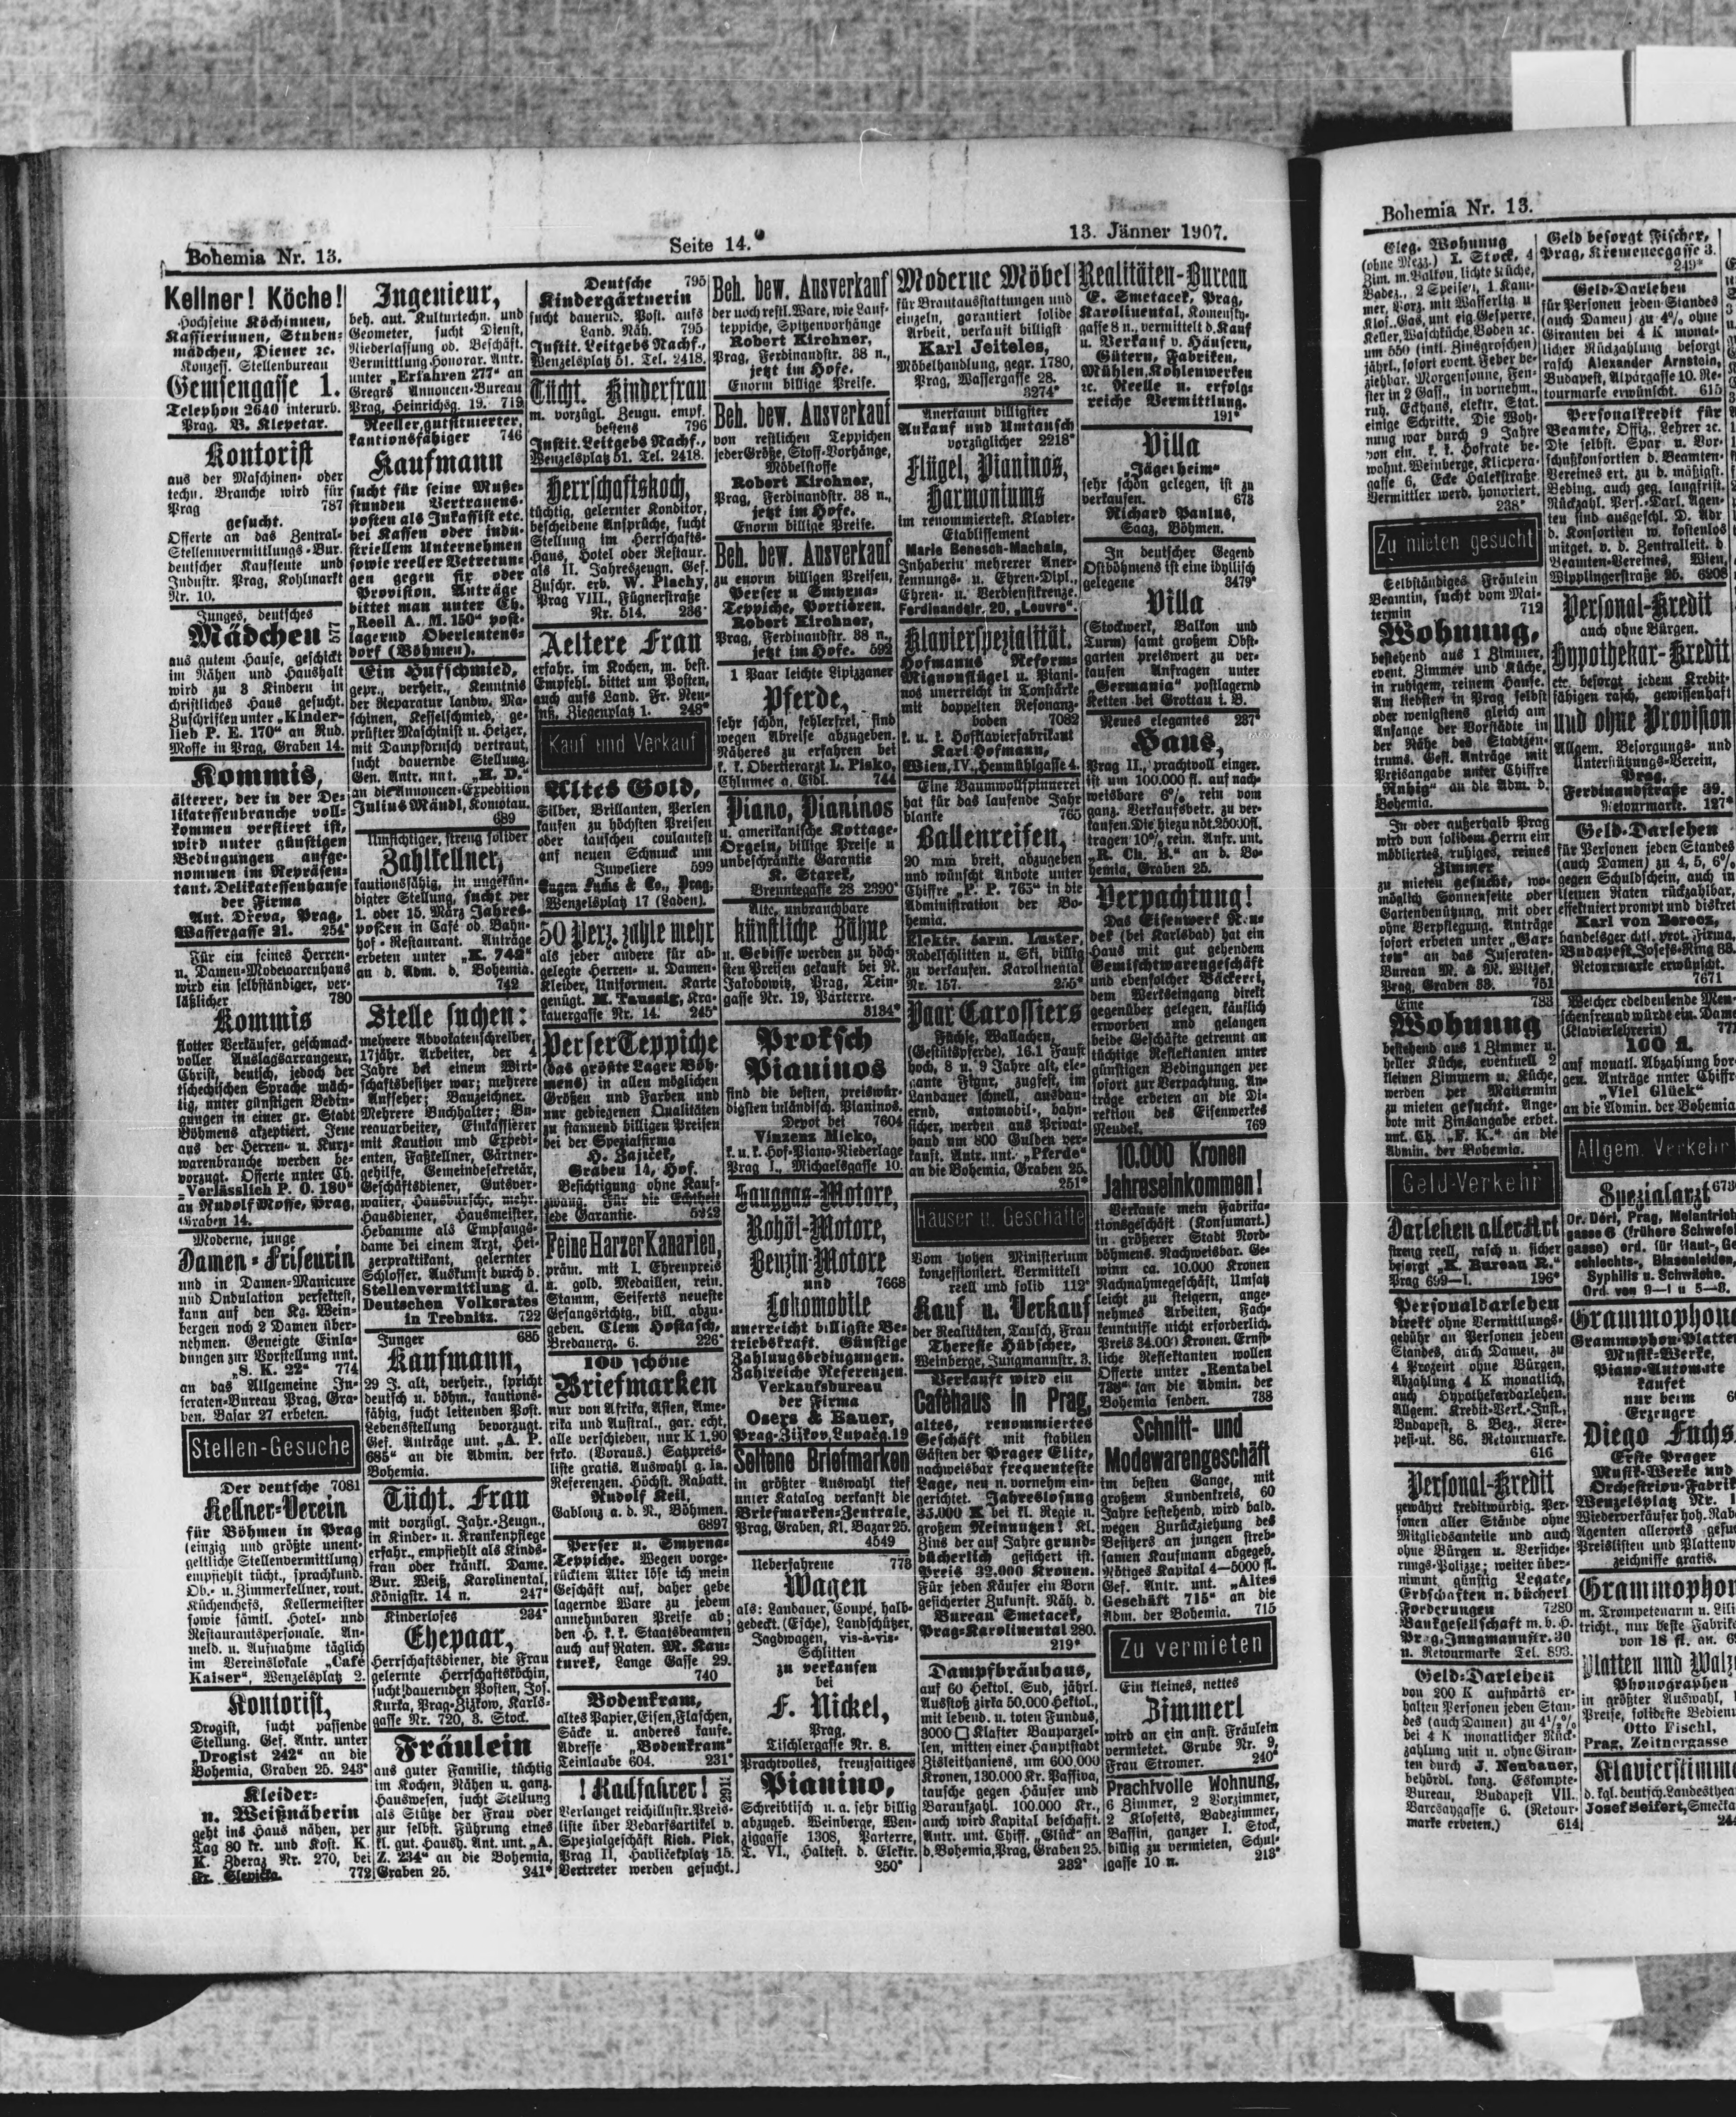 Bohemia Nr. 13.
Seite 14.
13. Jänner 1907.
Kellner! Köche!
Hochfeine Köchinnen,
Kassierinnen, Stuben-
mädchen, Diener ꝛc.
Konzess. Stellenbureau
Gemsengasse 1.
Telephon 2640 interurb.
Prag. B. Klepetar.
Kontorist
aus der Maschinen- oder
techn. Branche wird für
Prag 787
gesucht.
Offerte an das Zentral-
Stellenvermittlungs-Bur.
deutscher Kaufleute und
Industr. Prag, Kohlmarkt
Nr. 10.
Junges, deutsches
Mädchen 577
aus gutem Hause, geschickt
im Nähen und Haushalt
wird zu 3 Kindern in
christliches Haus gesucht.
Zuschriften unter „Kinder-
lieb P. E. 170“ an Rud.
Mosse in Prag, Graben 14.
Kommis,
älterer, der in der De-
likatessenbranche voll-
kommen versiert ist,
wird unter günstigen
Bedingungen aufge-
nommen im Repräsen-
tant. Delikatessenhause
der Firma
Ant. Dřeva, Prag,
Wassergasse 21. 254*
Für ein feines Herren-
u. Damen-Modewarenhaus
wird ein selbständiger, ver-
läßlicher 780
Kommis
flotter Verkäufer, geschmack-
voller Auslagsarrangeur,
Christ, deutsch, jedoch der
tschechischen Sprache mäch-
tig, unter günstigen Bedin-
gungen in einer gr. Stadt
Böhmens akzeptiert. Jene
aus der Herren- u. Kurz-
warenbranche werden be-
vorzugt. Offerte unter Ch.
„Verlässlich P. O. 180“
an Rudolf Mosse, Prag,
Graben 14.
Moderne, junge
Damen-Friseurin
und in Damen-Manicure
und Ondulation perfektest,
kann auf den Kg. Wein-
bergen noch 2 Damen über-
nehmen. Geneigte Einla-
dungen zur Vorstellung unt.
„S. K. 22“ 774
an das Allgemeine In-
seraten-Bureau Prag, Gra-
ben. Basar 27 erbeten.
Stellen-Gesuche
Der deutsche 7081
Kellner-Verein
für Böhmen in Prag
(einzig und größte unent-
geltliche Stellenvermittlung)
empfiehlt tücht., sprachkund.
Ob.- u. Zimmerkellner, rout.
Küchenchefs, Kellermeister
sowie sämtl. Hotel- und
Restaurantspersonale. An-
meld. u. Aufnahme täglich
im Vereinslokale „Café
Kaiser“, Wenzelsplatz 2.
Kontorist,
Drogist, sucht passende
Stellung. Gef. Antr. unter
„Drogist 242“ an die
Bohemia, Graben 25. 243*
Kleider-
u. Weißnäherin
geht ins Haus nähen, per
Tag 80 kr. und Kost. K.
K. Zderaz Nr. 270, bei
Fr. Slepička. 772
Ingenieur,
beh. aut. Kulturtechn. und
Geometer, sucht Dienst,
Niederlassung ob. Beschäft.
Vermittlung-Honorar. Antr.
unter „Erfahren 277“ an
Gregrs Annoncen-Bureau
Prag, Heinrichsg. 19. 719
Reeller, gutsituierter,
kautionsfähiger 746
Kaufmann
sucht für seine Muße-
stunden Vertrauens-
posten als Inkassist etc.
bei Kassen oder indu-
striellem Unternehmen
sowie reeller Vetretun-
gen gegen fix oder
Provision. Anträge
bittet man unter Ch.
„Reell A. M. 150“ post-
lagernd Oberleutens-
dorf (Böhmen).
Ein Hufschmied,
gepr., verheir., Kenntnis
der Reparatur landw. Ma-
schinen, Kesselschmied, ge-
prüfter Maschinist u. Heizer,
mit Dampfdrusch vertraut,
sucht dauernde Stellung.
Gen. Antr. unt. „H. D.“
an die Annoncen-Expedition
Julius Mändl, Komotau.
689
Umsichtiger, streng solider
Zahlkellner,
kautionsfähig, in ungekün-
digter Stellung, sucht per
1. oder 15. März Jahres-
posten in Café ob. Bahn-
hof-Restaurant. Anträge
erbeten unter „K. 742“
an d. Adm. d. Bohemia.
742
Stelle suchen:
mehrere Advokatenschreiber,
17jähr. Arbeiter, der 4
Jahre bei einem Wirt-
schaftsbesitzer war; mehrere
Aufseher; Bauzeichner.
Mehrere Buchhalter; Bu-
reauarbeiter, Einkassierer
mit Kaution und Expedi-
enten, Faßkellner, Gärtner-
gehilfe, Gemeindesekretär,
Geschäftsdiener, Gutsver-
walter, Hausbursche, mehr.
Hausdiener, Hausmeister,
Hebamme als Empfangs-
dame bei einem Arzt, Hei-
zerpraktikant, gelernter
Schlosser. Auskunft durch d.
Stellenvermittlung d.
Deutschen Volksrates
in Trebnitz. 722
Junger 685
Kaufmann,
29 J. alt, verheir., spricht
deutsch u. böhm., kautions-
fähig, sucht leitenden Post.
Lebensstellung bevorzugt.
Gef. Anträge unt. „A. P.
685“ an die Admin. der
Bohemia.
Tücht. Frau
mit vorzügl. Jahr.-Zeugn.,
in Kinder- u. Krankenpflege
erfahr., empfiehlt als Kinds-
frau oder kränkl. Dame.
Bur. Weiß, Karolinental,
Königstr. 14 n. 247*
Kinderloses 234*
Ehepaar,
Herrschaftsdiener, die Frau
gelernte Herrschaftsköchin,
sucht dauernden Posten, Jos.
Kurka, Prag-Zizkow, Karls-
gasse Nr. 720, 3. Stock.
Fräulein
aus guter Familie, tüchtig
im Kochen, Nähen u. ganz.
Hauswesen, sucht Stellung
als Stütze der Frau oder
zur selbst. Führung eines
kl. gut. Haush. Ant. unt. „A.
Z. 234“ an die Bohemia,
Graben 25. 241*
Deutsche 795
Kindergärtnerin
sucht dauernd. Post. aufs
Land. Näh. 795
Instit. Leitgebs Nachf.,
Wenzelsplatz 51. Tel. 2418.
Tücht. Kinderfrau
m. vorzügl. Zeugn. empf.
bestens 796
Instit. Leitgebs Nachf.,
Wenzelsplatz 51. Tel. 2418.
Herrschaftskoch,
tüchtig, gelernter Konditor,
bescheidene Ansprüche, sucht
Stellung im Herrschafts-
Haus, Hotel oder Restaur.
als II. Jahreszeugn. Gef.
Zuschr. erb. W. Plachy,
Prag VIII., Fügnerstraße
Nr. 514. 236*
Aeltere Frau
erfahr. im Kochen, m. best.
Empfehl. bittet um Posten,
auch aufs Land. Fr. Neu-
Ziegenplatz 1. 248*
Kauf und Verkauf
Altes Gold,
Silber, Brillanten, Perlen
kaufen zu höchsten Preisen
oder tauschen coulantest
auf neuen Schmuck um
Juweliere 599
Eugen Fuchs & Co., Prag,
Wenzelsplatz 17 (Laden).
50 Perz. zahle mehr
als jeder andere für ab-
gelegte Herren- u. Damen-
Kleider, Uniformen. Karte
genügt. M. Taussig, Kra-
kauergasse Nr. 14. 245*
Perser Teppiche
(das größte Lager Böh-
mens) in allen möglichen
Größen und Farben und
nur gediegenen Qualitäten
zu staunend billigen Preisen
bei der Spezialfirma
H. Zajíček,
Graben 14, Hof.
Besichtigung ohne Kauf-
zwang. Für die Echtheit
jede Garantie.
Feine Harzer Kanarien,
präm. mit I. Ehrenpreis
u. gold. Medaillen, rein.
Stamm, Seiferts neueste
Gesangsrichtg., bill. abzu-
geben. Clem Hostasch,
Bredauerg. 6. 226*
100 schöne
Briefmarken
nur von Afrika, Asien, Ame-
rika und Austral., gar. echt,
alle verschieden, nur K 1.90
frko. (Voraus.) Satzpreis-
liste gratis. Auswahl g. Ia.
Referenzen. Höchst. Rabatt.
Rudolf Keil,
Gablonz a. d. N., Böhmen.
6897
Perser u. Smyrna-
Teppiche. Wegen vorge-
rücktem Alter löse ich mein
Geschäft auf, daher gebe
lagernde Ware zu jedem
annehmbaren Preise ab;
den H. k. k. Staatsbeamten
auch auf Raten. M. Kau-
turek, Lange Gasse 29.
740
Bodenkram,
altes Papier, Eisen, Flaschen,
Säcke u. anderes kaufe.
Adresse „Bodenkram“
Teinlaube 604. 231*
! Radfahrer!
Verlanget reichillustr. Preis-
liste über Bedarfsartikel v.
Spezialgeschäft Rich. Pick,
Prag II, Havlíčekplatz 15.
Vertreter werden gesucht.
Beh. bew. Ausverkauf
der noch restl. Ware, wie Lauf-
teppiche, Spitzenvorhänge
Robert Kirchner,
Prag, Ferdinandstr. 38 n.,
jetzt im Hofe.
Enorm billige Preise.
Beh. bew. Ausverkauf
von restlichen Teppichen
jeder Größe, Stoff-Vorhänge,
Möbelstoffe
Robert Kirchner,
Prag, Ferdinandstr. 38 n.,
jetzt im Hofe.
Enorm billige Preise.
Beh. bew. Ausverkauf
zu enorm billigen Preisen,
Perser u Smyrna-
Teppiche, Portièren.
Robert Kirchner,
Prag, Ferdinandstr. 38 n.,
jetzt im Hofe. 592
1 Paar leichte Lipizzaner
Pferde,
sehr schön, fehlerfrei, sind
wegen Abreise abzugeben.
Näheres zu erfahren bei
k. k. Obertierarzt L. Pisko,
Chlumec a. Cidl. 744
Piano, Pianinos
u. amerikanische Kottage-
Orgeln, billige Preise u
unbeschränkte Garantie
K. Starek,
Brenntegasse 28 2390*
Alte, unbrauchbare
künstliche Zähne
u. Gebisse werden zu höch-
sten Preisen gekauft bei N.
Jakobowitz, Prag, Tein-
gasse Nr. 19, Parterre.
3134*
Proksch
Pianinos
sind die besten, preiswür-
digsten inländisch. Pianinos.
Depot bei 7604
Vinzenz Micko,
k. u. k. Hof-Piano-Niederlage
Prag I., Michaelsgasse 10.
Sauggas-Motore,
Rohöl-Motore,
Benzin-Motore
und 7668
Lokomobile
unerreicht billigste Be-
triebskraft. Günstige
Zahlungsbedingungen.
Zahlreiche Referenzen.
Verkaufsbureau
der Firma
Osers & Bauer,
Prag-Žižkov, Lupačg. 19
Seltene Briefmarken
in größter Auswahl tief
unter Katalog verkauft die
Briefmarken-Zentrale,
Prag, Graben, Kl. Bazar 25.
4549
Ueberfahrene 778
Wagen
als: Landauer, Coupé, halb-
gedeckt. (Esche), Landschützer,
Jagdwagen, vis-à-vis-
Schlitten
zu verkaufen
bei
F. Nickel,
Prag,
Tischlergasse Nr. 8.
Prachtvolles, kreuzsaitiges
Pianino,
Schreibtisch u. a. sehr billig
abzugeb. Weinberge, Wen-
ziggasse 1308, Parterre,
T. VI., Haltest. d. Elektr.
250*
Moderne Möbel
für Brautausstattungen und
einzeln, garantiert solide
Arbeit, verkauft billigst
Karl Jeiteles,
Möbelhandlung, gegr. 1780,
Prag, Wassergasse 28.
3274*
Anerkannt billigster
Ankauf und Umtausch
vorzüglicher 2218*
Flügel, Pianinos,
Harmoniums
im renommiertest. Klavier-
Etablissement
Marie Benesch-Machals,
Inhaberin mehrerer Aner-
kennungs- u. Ehren-Dipl.,
Ehren- u. Verdienstkreuze.
Ferdinandstr. 20, „Louvre“.
Klavierspezialität.
Hofmanns Reform-
Mignonflügel u. Piani-
nos unerreicht in Tonstärke
mit doppelten Resonanz-
boden 7082
k. u. k. Hofklavierfabrikant
Karl Hofmann,
Wien, IV., Heumühlgasse 4.
Eine Baumwollspinnerei
hat für das laufende Jahr
blanke 765
Ballenreifen,
20 mm breit, abzugeben
und wünscht Anbote unter
Chiffre „P. P. 765“ in die
Administration der Bo-
hemia.
Elektr. 5arm. Luster,
Rodelschlitten u. Ski, billig
zu verkaufen. Karolinental
Nr. 157. 255*
Paar Carossiers
Füchse, Wallachen,
(Gestütspferde), 16.1 Faust
hoch, 8 u. 9 Jahre alt, ele-
gante Figur, zugfest, im
Landauer schnell, ausdau-
ernd, automobil-, bahn-
sicher, werden aus Privat-
hand um 800 Gulden ver-
kauft. Antr. unt. „Pferde“
an die Bohemia, Graben 25.
251*
Häuser u. Geschäfte
Vom hohen Ministerium
konzessioniert. Vermittelt
reell und solid 112*
Kauf u. Verkauf
der Realitäten, Tausch, Frau
Therese Hübscher,
Weinberge, Jungmannstr. 3.
Verkauft wird ein
Caféhaus in Prag,
altes, renommiertes
Geschäft mit stabilen
Gästen der Prager Elite,
nachweisbar frequenteste
Lage, neu u. vornehm ein-
gerichtet. Jahreslosung
35.000 K bei kl. Regie u.
großem Reinnutzen! Kl.
Zins der auf Jahre grund-
bücherlich gesichert ist.
Preis 32.000 Kronen.
Für jeden Käufer ein Born
gesicherter Zukunft. Näh. d.
Bureau Smetacek,
Prag-Karolinental 280.
219*
Dampfbräuhaus,
auf 60 Hektol. Sud, jährl.
Ausstoß zirka 50.000 Hektol.,
mit lebend. u. toten Fundus,
3000 □ Klafter Bauparzel-
len, mitten einer Hauptstadt
Zisleithaniens, um 600.000
Kronen, 130.000 Kr. Passiva,
tausche gegen Häuser und
Baraufzahl. 100.000 Kr.,
auch wird Kapital beschafft.
Antr. unt. Chiff. „Glück“ an
d. Bohemia, Prag, Graben 25.
232*
Realitäten-Bureau
E. Smetacek, Prag,
Karolinental, Komensky-
gasse 8 n., vermittelt d. Kauf
u. Verkauf v. Häusern,
Gütern, Fabriken,
Mühlen, Kohlenwerken
ꝛc. Reelle u. erfolg-
reiche Vermittlung.
191*
Villa
„Jägerheim“
sehr schön gelegen, ist zu
verkaufen. 673
Richard Paulus,
Saaz, Böhmen.
In deutscher Gegend
Ostböhmens ist eine idyllisch
gelegene 3479*
Villa
(Stockwerk, Balkon und
Turm) samt großem Obst-
garten preiswert zu ver-
kaufen Anfragen unter
„Germania“ postlagernd
Ketten bei Grottau i. B.
Neues elegantes 237*
Haus,
Prag II., prachtvoll einger.
ist um 100.000 fl. auf nach-
weisbare 6% rein vom
ganz. Verkaufsbetr. zu ver-
kaufen. Die hiezu nöt. 25000fl.
tragen 10% rein. Anfr. unt.
„R. Ch. B.“ an d. Bo-
hemia, Graben 25.
Verpachtung!
Das Eisenwerk Neu-
dek (bei Karlsbad) hat ein
Haus mit gut gehendem
Gemischtwarengeschäft
und ebensolcher Bäckerei,
dem Werkseingang direkt
gegenüber gelegen, käuflich
erworben und gelangen
beide Geschäfte getrennt an
tüchtige Reflektanten unter
günstigen Bedingungen per
sofort zur Verpachtung. An-
träge erbeten an die Di-
rektion des Eisenwerkes
Neudek. 769
10.000 Kronen
Jahreseinkommen!
Verkaufe mein Fabrika-
tionsgeschäft (Konsumart.)
in größerer Stadt Nord-
böhmens. Nachweisbar. Ge-
winn ca. 10.000 Kronen
Nachnahmegeschäft, Umsatz
leicht zu steigern, ange-
nehmes Arbeiten, Fach-
kenntnisse nicht erforderlich.
Preis 34.000 Kronen. Ernst-
liche Reflektanten wollen
Offerte unter „Rentabel
788“ an die Admin. der
Bohemia senden. 788
Schnitt- und
Modewarengeschäft
im besten Gange, mit
großem Kundenkreis, 60
Jahre bestehend, wird bald.
wegen Zurückziehung des
Besitzers an jungen streb-
samen Kaufmann abgegeb.
Nötiges Kapital 4—5000 fl.
Gef. Antr. unt. „Altes
Geschäft 715“ an die
Adm. der Bohemia. 715
Zu vermieten
Ein kleines, nettes
Zimmerl
wird an ein anst. Fräulein
vermietet. Grube Nr. 9,
Frau Stromer. 240*
Prachtvolle Wohnung,
6 Zimmer, 2 Vorzimmer,
2 Klosetts, Badezimmer,
Bassin, ganzer I. Stock,
billig zu vermieten, Schul-
gasse 10 n. 213*
Bohemia Nr. 13.
Eleg. Wohnung
(ohne Mezz.) I. Stock, 4
Zim. m. Balkon, lichte Küche,
Badez., 2 Speisen, 1 Kam-
mer, Vorz. mit Wasserltg. u
Klos., Gas, unt. eig. Gesperre,
Keller, Waschküche, Boden ꝛc.
um 550 (inkl. Zinsgroschen)
jährl., sofort event. Feber be-
ziehbar. Morgensonne, Fen-
ster in 2 Gass., in vornehm.,
ruh. Eckhaus, elektr. Stat.
einige Schritte. Die Woh-
nung war durch 9 Jahre
von ein. k. k. Hofrate be-
wohnt. Weinberge, Klicpera-
gasse 6, Ecke Halekstraße
Vermittler werd. honoriert.
238*
Zu mieten gesucht
Selbständiges Fräulein
Beamtin, sucht vom Mai-
termin 712
Wohnung,
bestehend aus 1 Zimmer,
event. Zimmer und Küche,
in ruhigem, reinem Hause.
Am liebsten in Prag selbst
oder wenigstens gleich am
Anfange der Vorstädte in
der Nähe des Stadtzen-
trums. Gefl. Anträge mit
Preisangabe unter Chiffre
„Ruhig“ an die Adm. d.
Bohemia.
In oder außerhalb Prag
wird von solidem Herrn ein
möbliertes, ruhiges, reines
Zimmer
zu mieten gesucht, wo-
möglich Sonnenseite oder
Gartenbenützung, mit oder
ohne Verpflegung. Anträge
sofort erbeten unter „Gar-
ten“ an das Inseraten-
Bureau M. & M. Witzek,
Prag, Graben 33. 751
Eine 783
Wohnung
bestehend aus 1 Zimmer u.
heller Küche, eventuell 2
kleinen Zimmern u. Küche,
werden per Maitermin
zu mieten gesucht. Ange-
bote mit Zinsangabe erbet.
unt. Ch. „F. K.“ an die
Admin. der Bohemia.
Geld-Verkehr
Darlehen aller Art
streng reell, rasch u. sicher
besorgt „K. Bureau R.“
Prag 699—I. 196*
Personaldarlehen
direkt ohne Vermittlungs-
gebühr an Personen jeden
Standes, auch Damen, zu
4 Prozent ohne Bürgen,
Abzahlung 4 K monatlich,
auch Hypothekardarlehen.
Allgem. Kredit-Verk.-Inst.,
Budapest, 8. Bez., Kere-
pesi-ut. 86. Retourmarke.
616
Personal-Kredit
gewährt kreditwürdig. Per-
sonen aller Stände ohne
Mitgliedsanteile und auch
ohne Bürgen u. Versiche-
rungs-Polizze; weiter über-
nimmt günstig Legate,
Erbschaften u. bücherl
Forderungen 7280
Bankgesellschaft m. b. H.
Prag, Jungmannstr. 30
u. Retourmarke Tel. 893.
Geld-Darlehen
von 200 K aufwärts er-
halten Personen jeden Stan-
des (auch Damen) zu 4½%
bei 4 K monatlicher Rück-
zahlung mit u. ohne Giran-
ten durch J. Neubauer,
behördl. konz. Eskompte-
Bureau, Budapest VII.,
Barcsaygasse 6. (Retour-
marke erbeten.) 614
Geld besorgt Fischer,
Prag, Kremenecgasse 3.
249*
Geld-Darlehen
für Personen jeden Standes
(auch Damen) zu 4% ohne
Giranten bei 4 K monat-
licher Rückzahlung besorgt
rasch Alexander Arnstein,
Budapest, Alpárgasse 10. Re-
tourmarke erwünscht. 615
Personalkredit für
Beamte, Offiz., Lehrer ꝛc.
Die selbst. Spar u. Vor-
schußkonsortien d. Beamten-
Vereines ert. zu d. mäßigst.
Beding. auch geg. langfrist.
Rückzahl. Pers.-Darl. Agen-
ten sind ausgeschl. D. Adr
d. Konsortien w. kostenlos
mitget. v. d. Zentralleit. d
Beamten-Vereines, Wien,
Wipplingerstraße 25. 6208
Personal-Kredit
auch ohne Bürgen.
Hypothekar-Kredit
etc. besorgt jedem Kredit-
fähigen rasch, gewissenhaft
und ohne Provision
Allgem. Besorgungs- und
Unterstützungs-Verein,
Prag,
Ferdinandstraße 39.
Retourmarke. 127*
Geld-Darlehen
für Personen jeden Standes
(auch Damen) zu 4, 5, 6%
gegen Schuldschein, auch in
kleinen Raten rückzahlbar,
effektuiert prompt und diskret
Karl von Berecz,
handelsger.chtl. prot. Firma,
Budapest, Josefs-Ring 33.
Retourmarke erwünscht.
7671
Welcher edeldenkende Men-
schenfreund würde ein. Dame
(Klavierlehrerin)
100 fl.
auf monatl. Abzahlung bor-
gen. Anträge unter Chiffre
„Viel Glück“
an die Admin. der Bohemia
Allgem. Verkehr
Spezialarzt
Dr. Déri, Prag, Melantrich
gasse 6 (frühere Schwefel
gasse) ord. für Haut-, Ge
schlechts-, Blasenleiden,
Syphilis u. Schwäche.
Ord. von 9—1 u 5—8.
Grammophone
Grammophon-Platten
Musik-Werke,
Piano-Automate
kaufet
nur beim
Erzeuger
Diego Fuchs,
Erste Prager
Musik-Werke und
Orchestrion-Fabrik
Wenzelsplatz Nr. 1
Wiederverkäufer hoh. Raba
Agenten allerorts gesuc
Preislisten und Plattenv
zeichnisse gratis.
Grammophon
m. Trompetenarm u. Lili
tricht., nur beste Fabrik
von 18 fl. an.
Platten und Walz
Phonographen
in größter Auswahl,
Preise, solideste Bedien
Otto Fischl,
Prag, Zeltnergasse
Klavierstimm
d. kgl. deutsch. Landesthea
Josef Seifert, Smečka